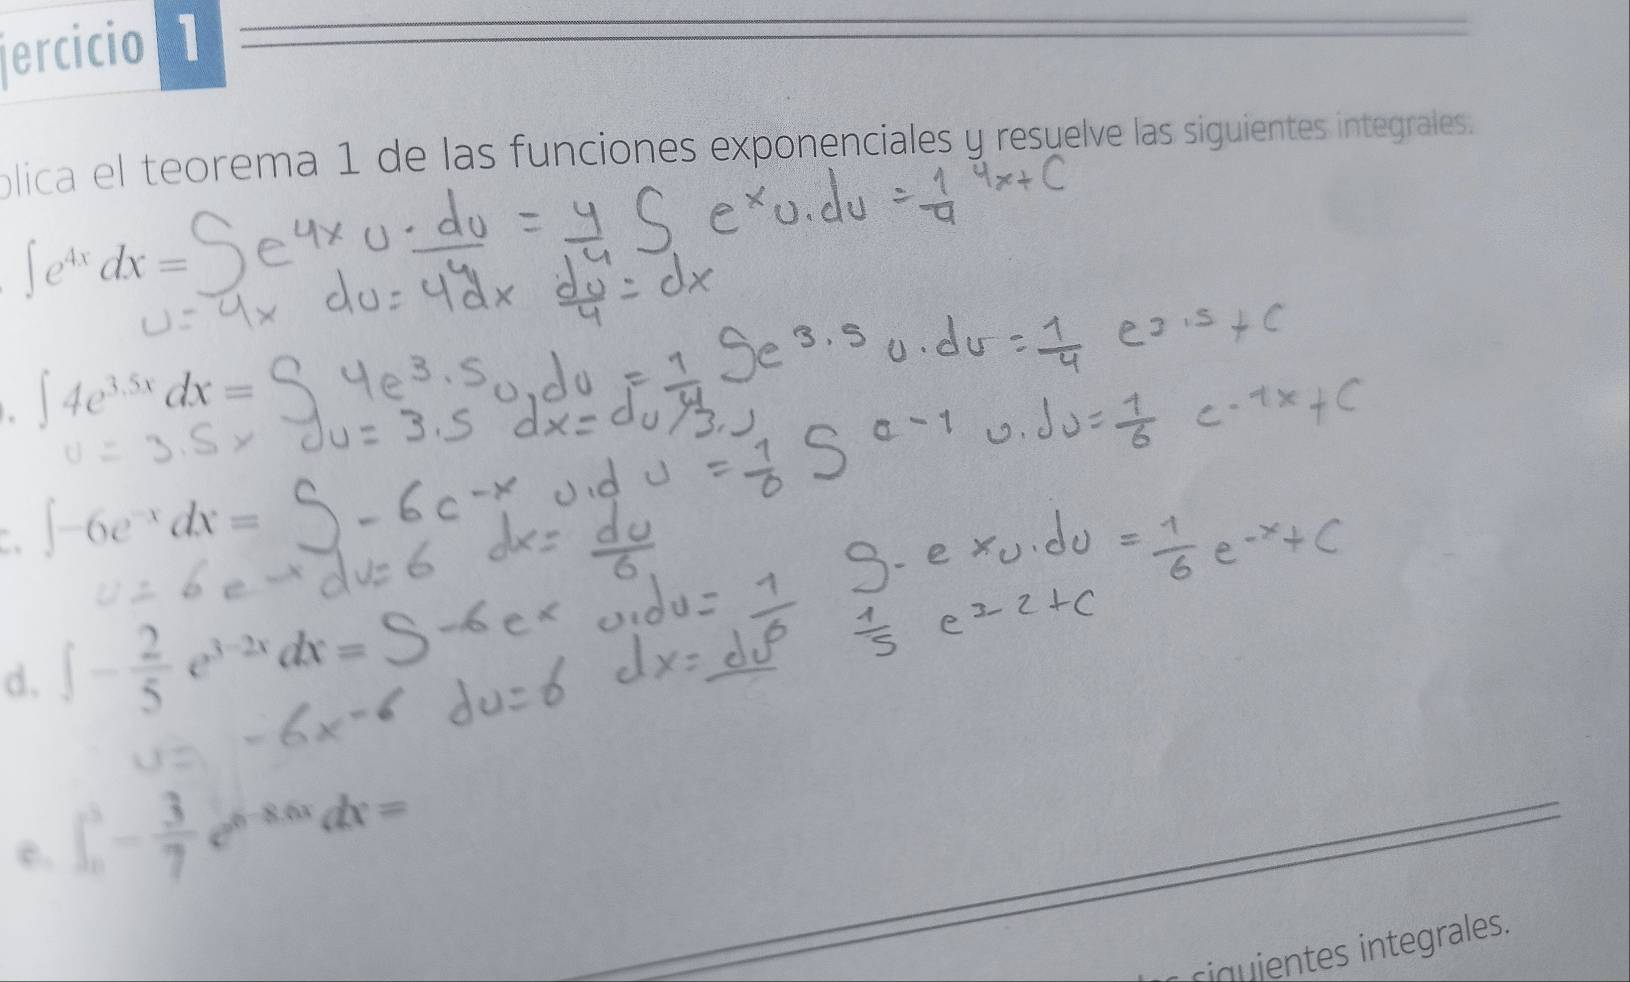 jercicio 1
plica el teorema 1 de las funciones exponenciales y resuelve las siguientes integrales.
∫e^{4x} dx = S e^{4x} u · du/4 = 4/4 S e^x u.du = 1/4 ^{4x+C}
u = 4x du = 4dx du/4 = dx
. ∫4e^{3.5x} dx = S 4e^{3.5} u.du = 1/4 S e^{3.5} u.du = 1/4 e^{3.5} + C
u = 3.5x du = 3.5 dx = du/3.5
c. ∫-6e^{-x} dx = S - 6e^{-x} u.du = 1/6 S e^{-1} u.du = 1/6 e^{-1x} + C
u = 6e^{-x} du = 6 dx = du/6
d. ∫ - 2/5 e^{3-2x} dx = S - 6e^x u.du = 1/6 S - e^x u.du = 1/6 e^{-x} + C
u = -6x^{-6} du = 6 dx = du 1/5 e^{3-2} + C
e. ∫ - 3/7 dx =
siguientes integrales.